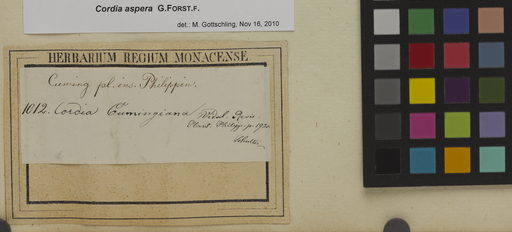 Cordia aspera G.FORST.F.
det.: M. Gottschling, Nov 16, 2010
HERBARIUM REGIUM MONACENSE
Cuming pl. ins. Philippin.
1012. Cordia Cumingiana Vidal Revis.
Plant. Philipp. p. 193.